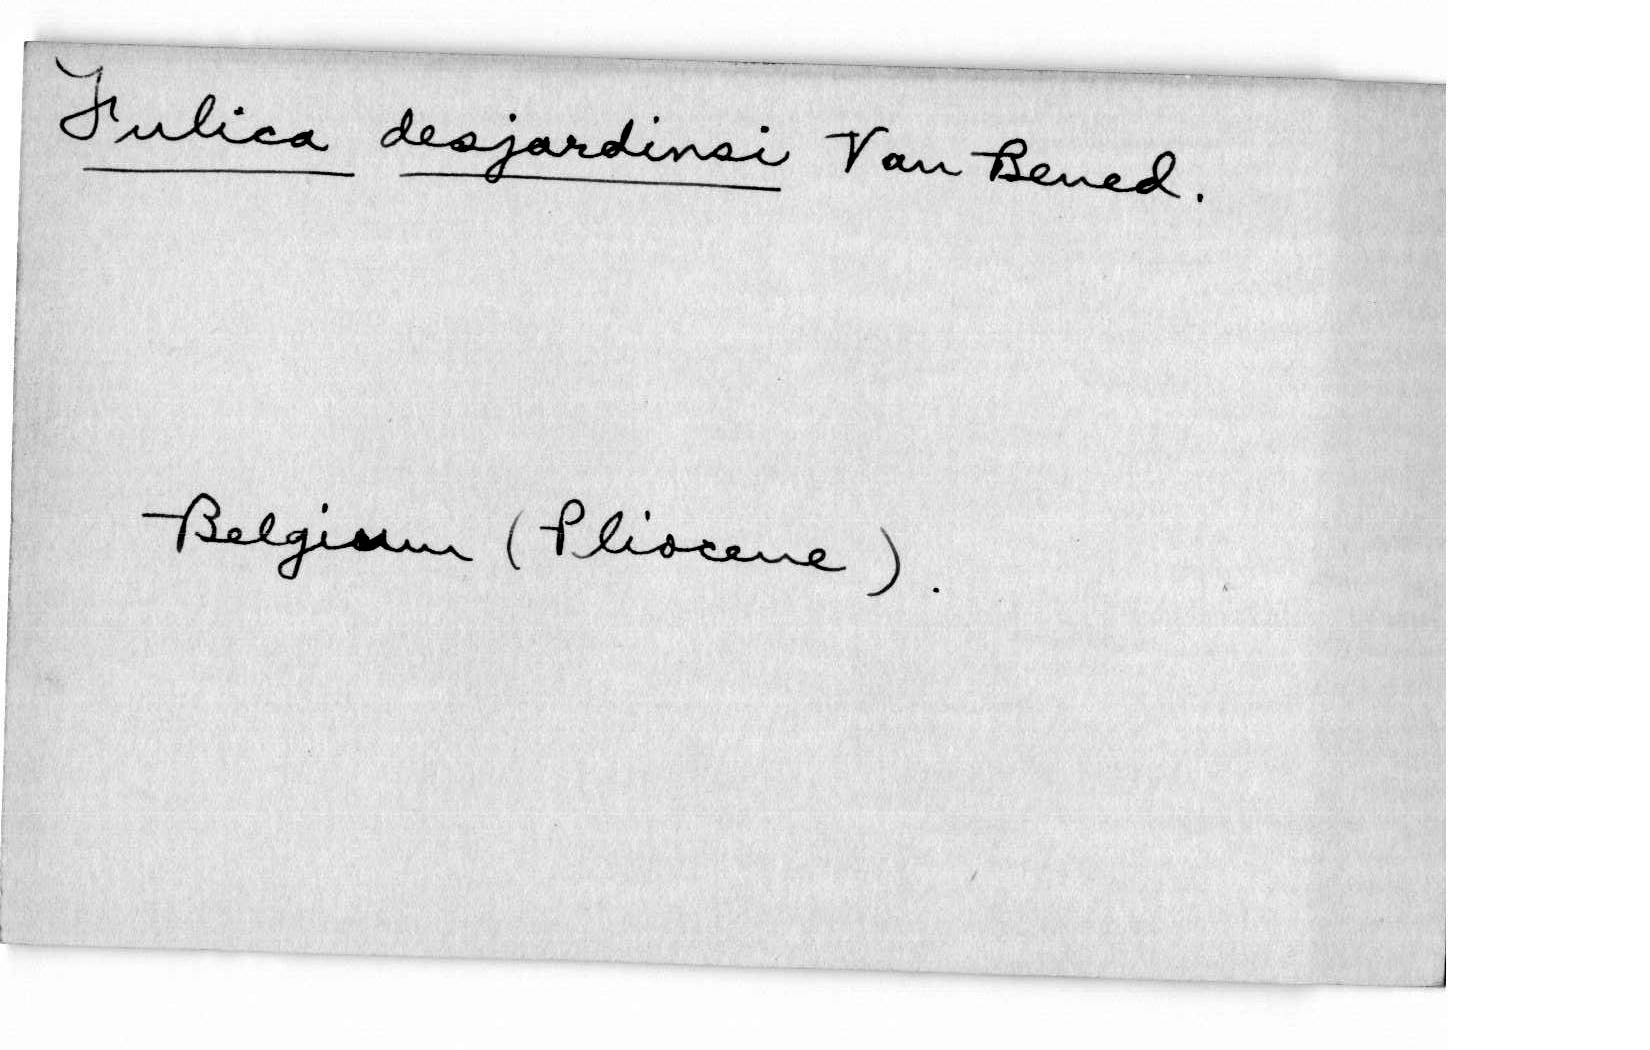 Fulica desjardinsi Van Bened.
Belgium (Pliocene).